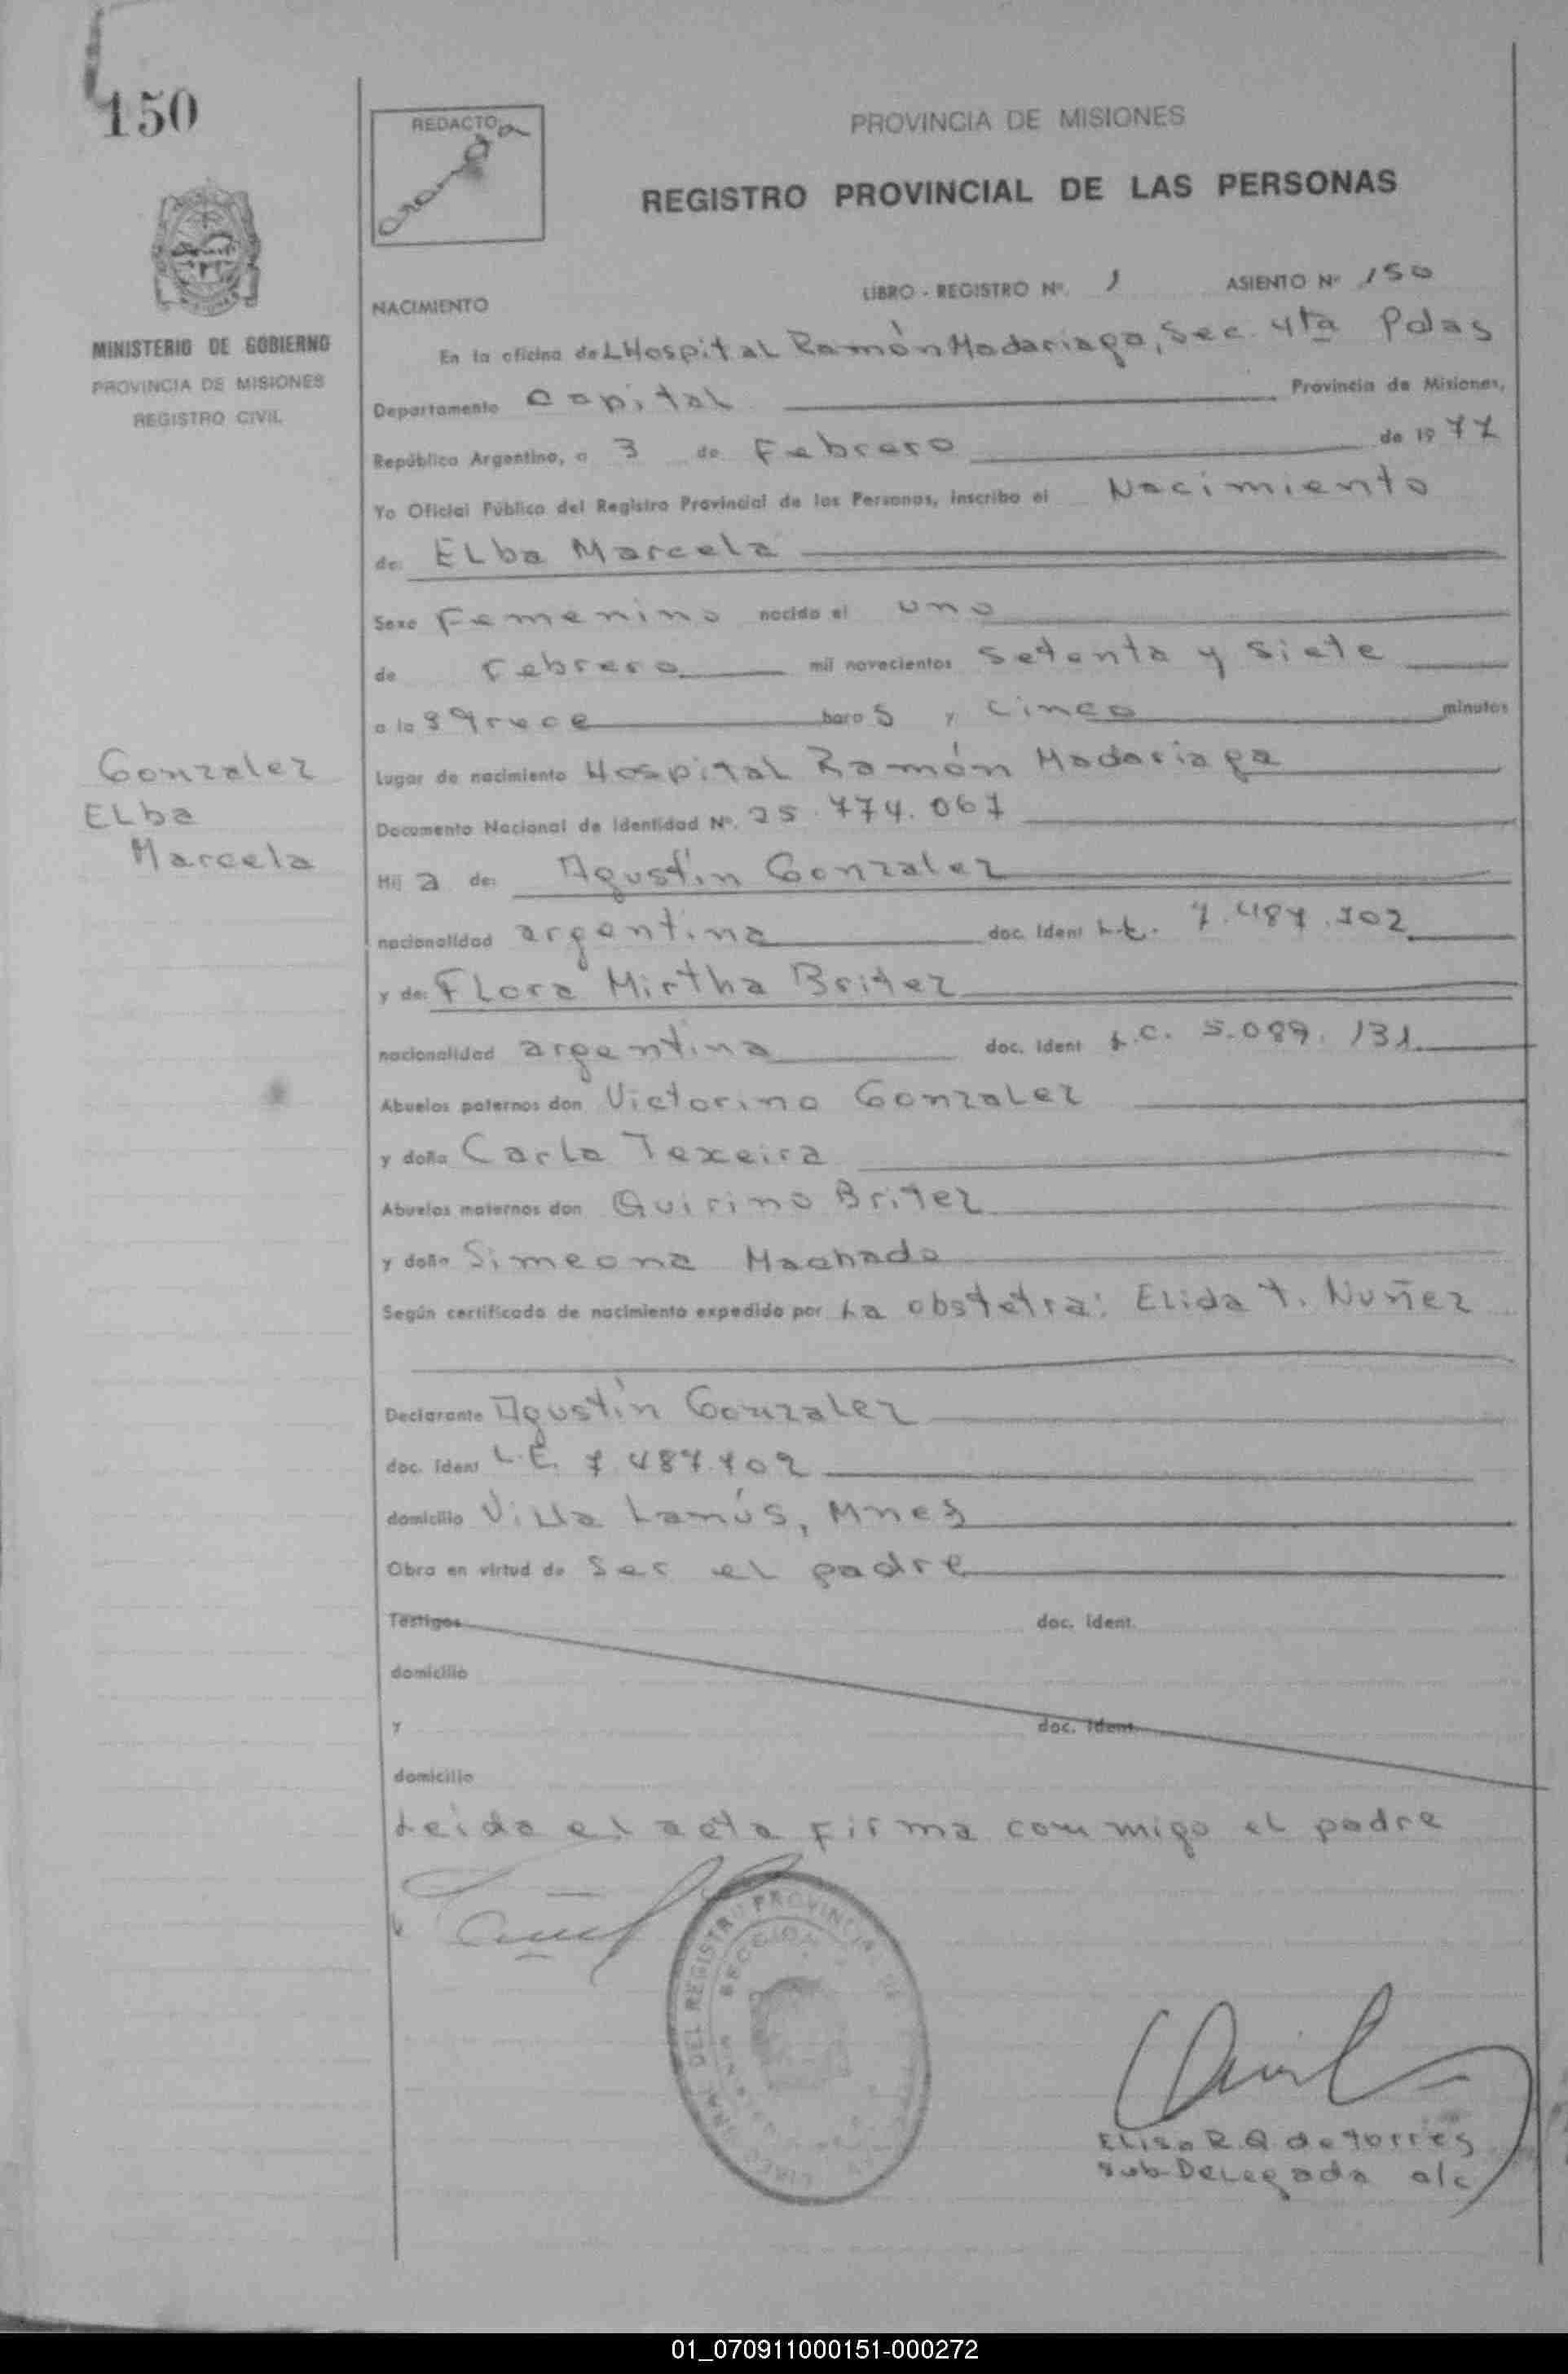 150
REDACTO
PROVINCIA DE MISIONES
REGISTRO PROVINCIAL DE LAS PERSONAS
MINISTERIO DE GOBIERNO
PROVINCIA DE MISIONES
REGISTRO CIVIL
NACIMIENTO LIBRO - REGISTRO Nº. 1 ASIENTO Nº 150
En la oficina deL Hospital Ramón Madariaga, Sec. 4ta Pdas
Departamento Capital Provincia de Misiones,
República Argentina, a 3 de Febrero de 1977
Yo Oficial Público del Registro Provincial de las Personas, inscribo el Nacimiento
de: ELba Marcela
Sexo Femenino nacido el uno
de Febrero mil novecientos setenta y siete
a las trece horas y cinco minutos
Lugar de nacimiento Hospital Ramón Madariaga
Gonzalez
ELba
Marcela
Documento Nacional de Identidad Nº. 25.774.067
Hija de: Agustín Gonzalez
nacionalidad argentina doc. Ident L.E. 7.487.702
y de: FLora Mirtha Britez
nacionalidad argentina doc. Ident L.C. 5.089.131
Abuelos paternos don Victorino GonzaLez
y doña CarLa Texeira
Abuelos maternos don Quirino Britez
y doña Simeona Machado
Según certificado de nacimiento expedido por La obstetra: Elida T. Nuñez
Declarante Agustín GonzaLez
doc. ident L.E. 7.487.702
domicilio ViLLa Lanús, Mnes
Obra en virtud de ser eL padre
Testigos doc. ident.
domicilio
y doc. ident.
domicilio
Leida el acta firma conmigo eL padre
DEL REGISTRO PROVINCIAL DE
SECCION
ELisa R. Q. de torres
Sub-DeLegada a/c
01_070911000151-000272